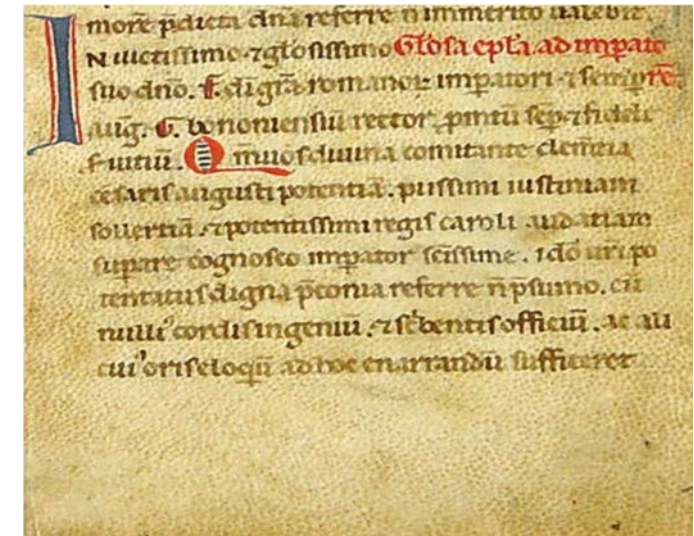 more p̄dicta dn̄a referre n̄ immerito ualebit.
INuictissimo ⁊ gl̓osissimo Gl̓osa epl̓a ad imp̱ato
suo dn̄o. f. di gr̄a romanoꝝ imp̱atori ⁊ semp̱ rē.
aug. G. bononiensiū rector, p̱petuū sep̱ ⁊ fidele
seruitiū. Q̄m uos diuina comitante clem̄tia
cesaris augusti potentiā. piissimi iustiniani
sollertiā. ⁊ potentissimi regis caroli audatiam
sup̱are cognosco imp̱ator sc̄issime. idō ur̄i po
tentatus digna p̄conia referre n̄ p̄sumo. cū
nulli᷒ cordis ingeniū. ⁊ sc̓bentis officiū. ac ali
cui᷒ oris eloq̄ū ad hoc enarrandū sufficeret